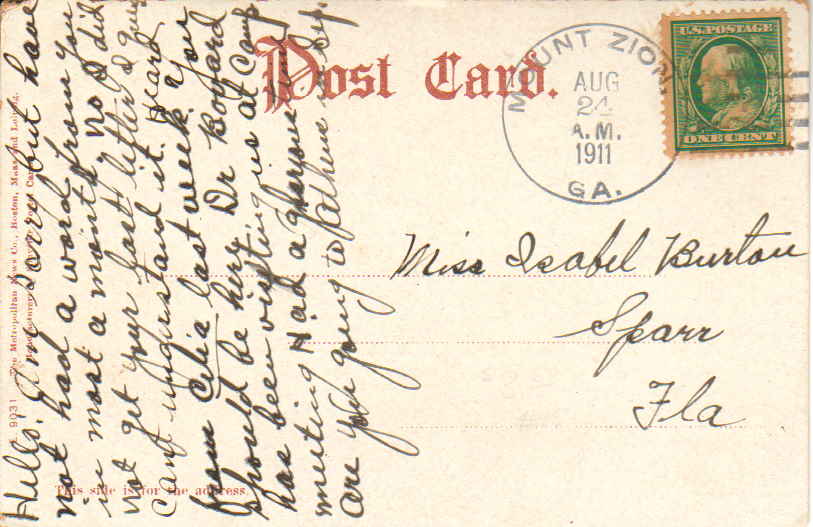 Post Card.
MOUNT ZION
AUG
24
A.M.
1911
GA.
U.S. POSTAGE
ONE CENT
Miss Isabel Burton
Sparr
Fla
Hello! sorry but have
not had a word from you
in most a month. No I did
not get your last letter &
cant understand it. Heard
from Celia last week. You
should be here Dr Bogard
has been visiting us at Camp
meeting Had a glorious time
are you going to Athens in Sep.
This side is for the address.
9031 The Metropolitan News Co., Boston, Mass. and Leipzig.